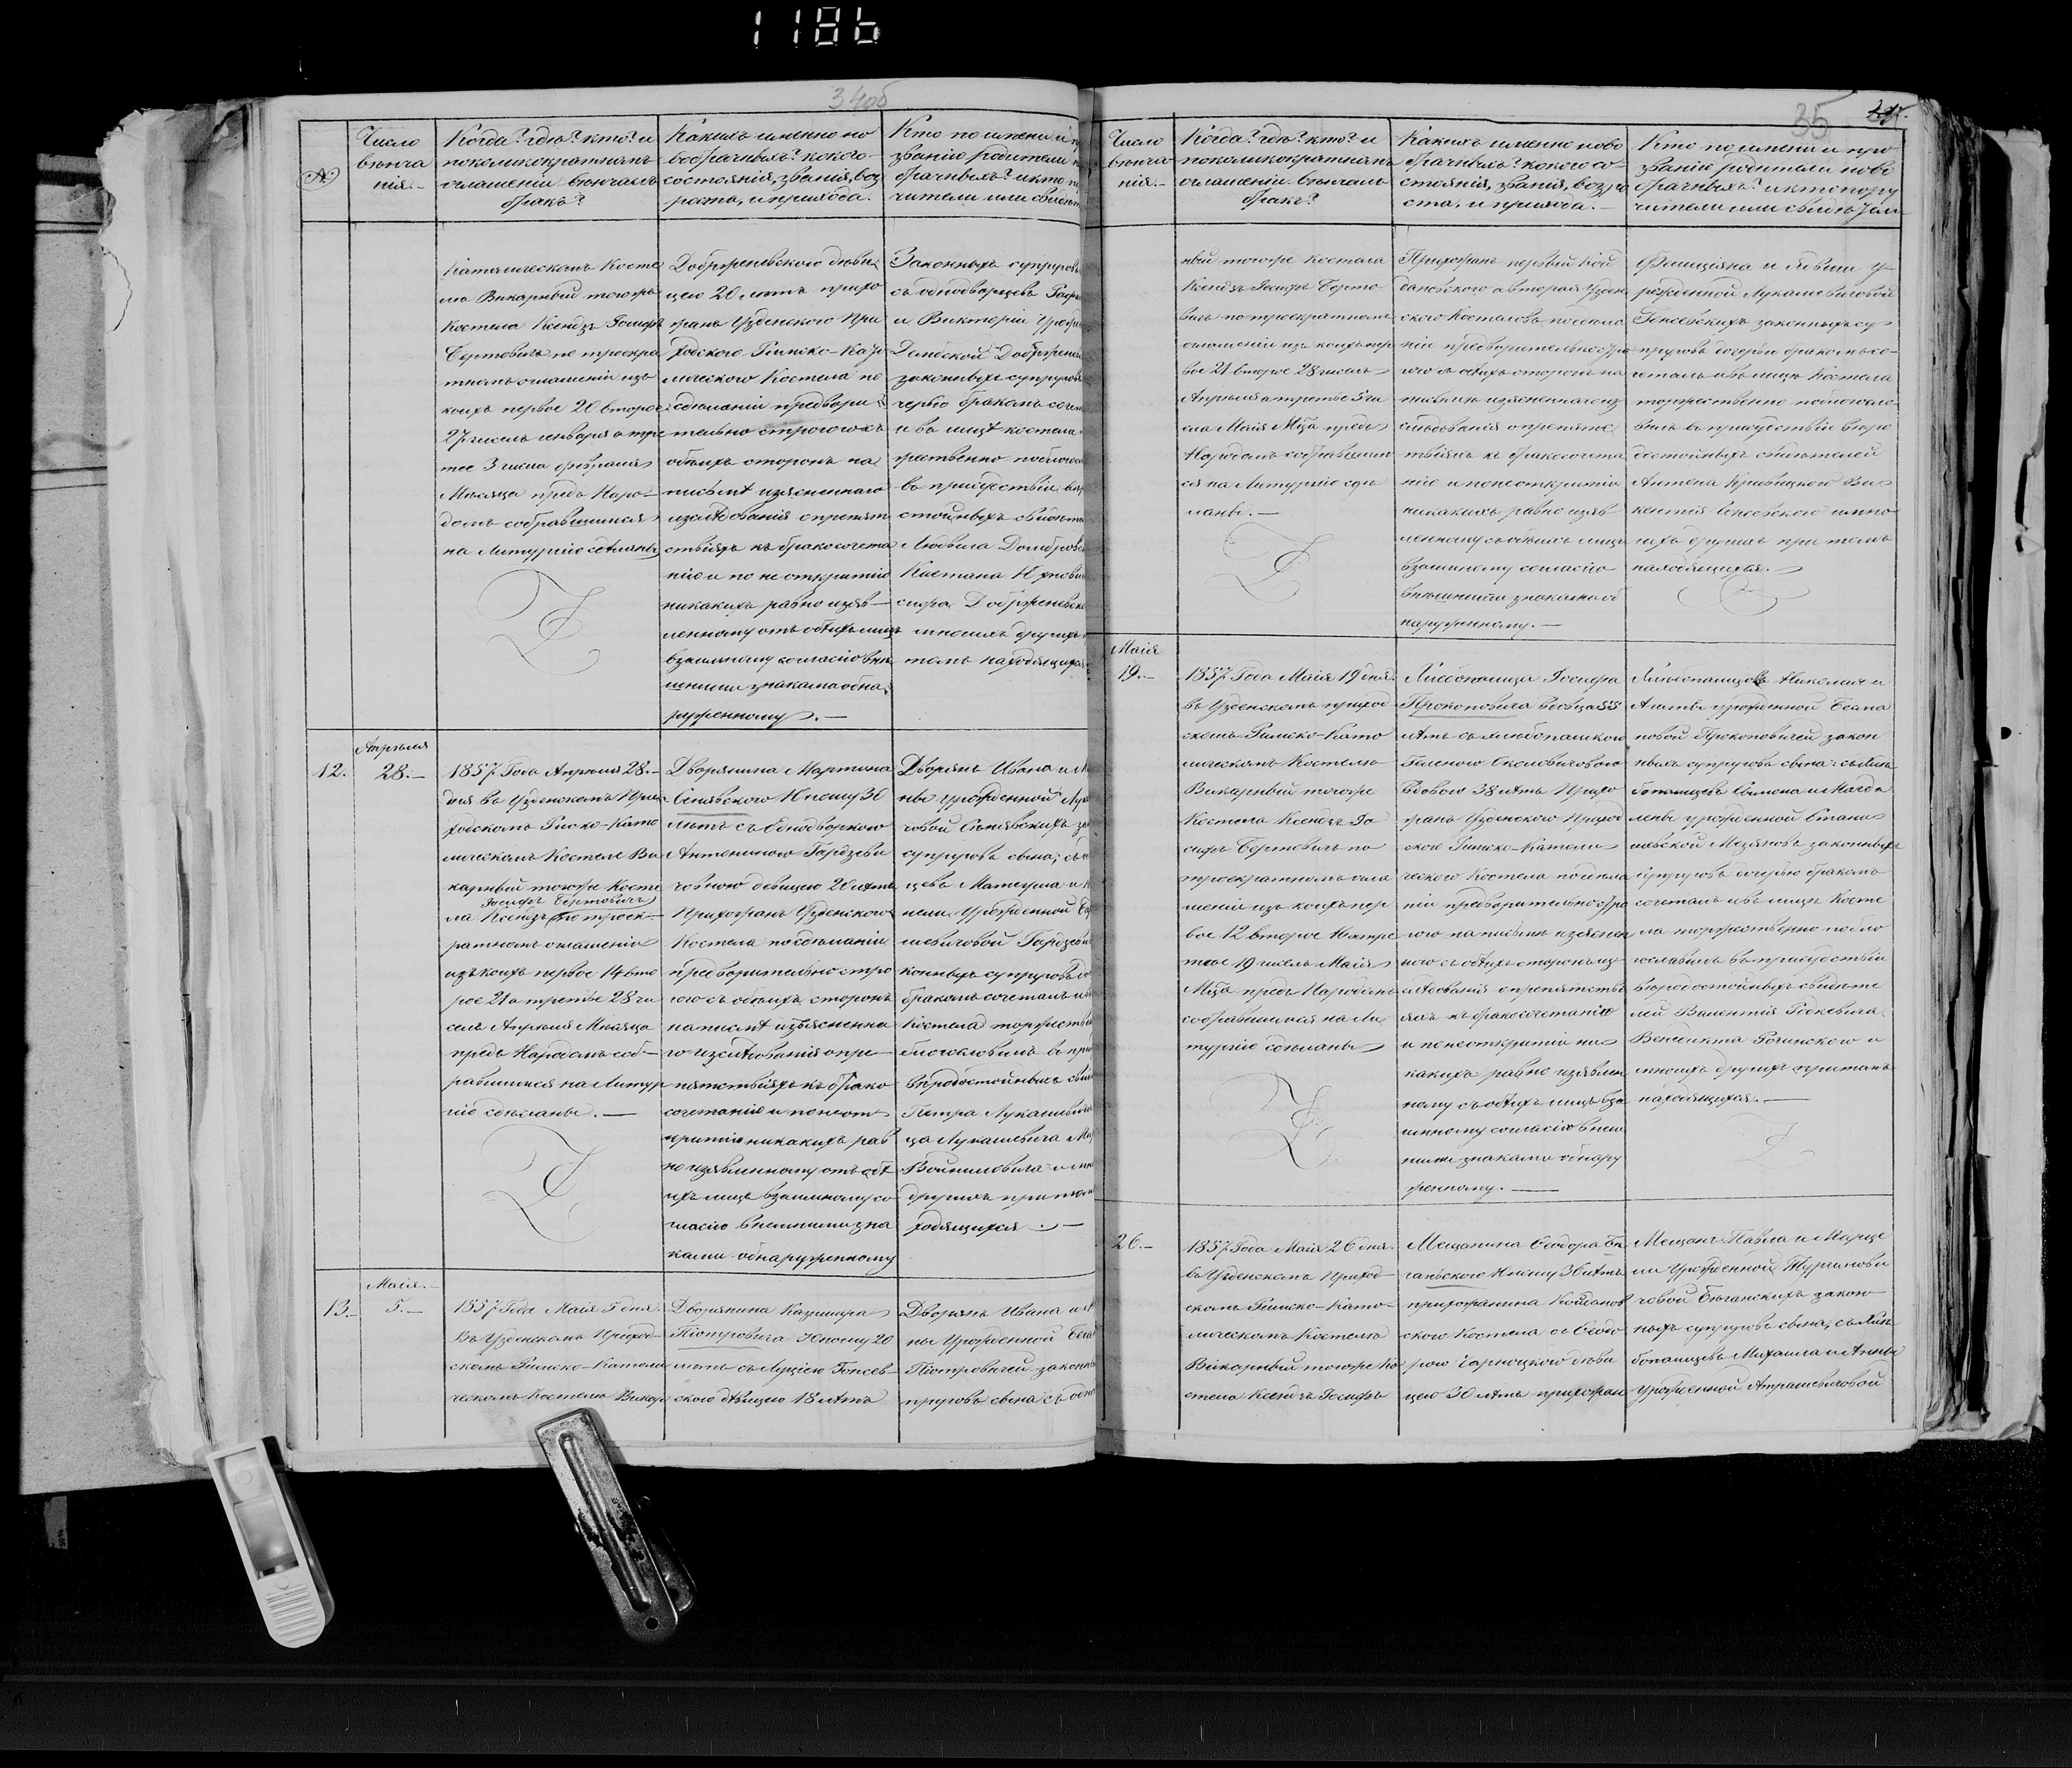 1186
34об
№
Число
вѣнча
нія.—
Когда? гдѣ? кто? и
поколикократномъ
оглашеніи вѣнчалъ
бракъ?
Какихъ именно но
вобрачныхъ? какого
состоянія, званія, воз
раста, и прихода.
Кто по имени и
званію родители
брачныхъ? и кто
чители или свидѣт
Католическомъ Косте
лѣ Викарный того же
Костела Ксендзъ Іосифъ
Бертовичъ по троекра
тномъ оглашеніи изъ
коихъ первое 20 второе
27 числъ января а тре
тее 3 числа февраля
Мѣсяца предъ Наро-
домъ собравшимся
на Литургію сдѣланы
Добржневскою дѣви
цею 20 лѣтъ прихо
жанъ Узденского При
ходского Римско-Като
лическаго Костела по
сдѣланіи предвари
тельно строгого съ
обѣихъ сторонъ на
письмѣ изясненнаго
изслѣдованія о препят
ствіяхъ къ бракосочета
нію и по не открытію
никакихъ равно изяв—
ленному отъ обѣихъ лицъ
взаимному согласію внѣ
шними знаками обна
руженному.—
Законныхъ супруговъ
съ однодворцевъ
и Викторіи
Домбской
законныхъ супруговъ
черью бракомъ сочет
и въ лицѣ костела
жественно поблагос
въ присутствіи
стойныхъ свидѣте
Людвика Домбров
Каетана
сифа Добржневск
многихъ другихъ
томъ находящихся
12.
Апрѣля
28.—
1857 Года Апрѣля 28.—
дня въ Узденскомъ При
ходскомъ Риско-Като
лическомъ Костелѣ Ви
карный того же Косте
Іосифъ Бертовичъ
ла Ксендзъ по троек—
ратномъ оглашеніи
изъ коихъ первое 14 вто
рое 21 а третье 28 чи
селъ Апрѣля Мѣсяца
предъ Народомъ соб—
равшимся на Литур
гію сдѣланы.—
Дворянина Мартина
Сенявского Юношу 30
лѣтъ съ Однодворкою
Антониною Гордзеви
човною девицею 20 лѣтъ
Прихожанъ Узденского
Костела по сдѣланіи
предварительно стро
гого съ обѣихъ сторонъ
на писмѣ изъясненна
го изслѣдованія о пре—
пятствіяхъ къ брако
сочетанію и по не от
крытію никакихъ рав
но изявленному отъ обѣ
ихъ лицъ взаимному со
гласію внешними зна
ками обнаруженному
Дворянъ Ивана и
ны урожденной
човой Сенявскихъ за
супруговъ сына; съ
цевъ Матеуша и
Урожденной
шевичовой Гордзеви
конныхъ супруговъ до
бракомъ сочеталъ и в
Костела торжествен
благословилъ въ при
вѣродостойныхъ свид
Петра Лукашевича
ца Лукашевича
Войниловича и мно
другихъ при томъ
ходящихся.—
13.—
Маія.—
5.—
1857 Года Маія 5 дня.
Въ Узденскомъ Приход-
скомъ Римско-Католи
ческомъ Костелѣ Викар
Дворянина Казимира
Піотровича Юношу 20
лѣтъ съ Луціею Гонсев-
скою дѣвицею 18 лѣтъ
Дворянъ Ивана и
ны Урожденной
Піотровичей законн
пруговъ сына съ одно
35
Число
вѣнча
нія.—
Когда? гдѣ? кто? и
поколикократномъ
оглашеніи вѣнчалъ
бракъ?
Какихъ именно ново
брачныхъ? какого со-
стоянія, званія, возра
ста, и прихода.—
Кто по имени и про
званію родители ново
брачныхъ? и кто пору
чители или свидѣтели
ный того же Костела
Ксендзъ Іосифъ Берто
вичъ по троекратномъ
оглашеніи изъ коихъ пер
вое 21 второе 28 числъ
Апрѣля а третье 5 чи
сла Маія Мѣца предъ
Народомъ собравшим
ся на Литургію сдѣ
ланы.—
Прихожанъ первый Кой
дановского а вторая Узден
ского Костеловъ по сдѣла
ніи предварительно стро
гого съ обѣихъ сторонъ на
письмѣ изясненнаго из
слѣдованія о препятс
твіяхъ къ бракосочета
нію и по не открытію
никакихъ равно изяв
ленному съ обѣихъ лицъ
взаимному согласію
внѣшними знаками об
наруженному.—
Фелиціяна и Евы у-
рожденной Лукашевичовой
Гонсевскихъ законныхъ су
пруговъ дочерью бракомъ со-
четалъ и въ лицѣ Костела
торжественно поблагосло-
вилъ въ присутствіи вѣро
достойныхъ свидѣтелей
Антона Кривицкого Ви
кентія Гонсевского и мно
гихъ другихъ при томъ
находящихся.
Маія
19.—
1857 Года Маія 19 дня.
въ Узденскомъ приход
скомъ Римско-Като
лическомъ Костелѣ
Викарный того же
Костела Ксендзъ Іо
сифъ Бертовичъ по
троекратномъ огла
шеніи изъ коихъ пер
вое 12 второе а тре
тое 19 числъ Маія
Мѣца предъ Народомъ
собравшимся на Ли
тургію сдѣланы
Хлебопашца Іосифа
Прокоповича вдовца 55
лѣтъ съ хлѣбопашкою
Еленою
вдовою 38 лѣтъ Прихо
жанъ Узденского Приход
ского Римско-Католи
ческого Костела по сдѣла
ніи предварительно стро
гого на письмѣ изяснен
ного съ обѣихъ сторонъ из
слѣдованія о препятстві
яхъ къ бракосочетанію
и по не открытіи ни
какихъ равно изявлен
ному съ обѣихъ лицъ вза
имному согласію внеш
ними знаками обнару
женному.—
Хлѣбопашцевъ Николая и
урожденной
Прокоповичей закон
ныхъ супруговъ сына: съ хлѣ
бопашцевъ Семена и Магда
лены урожденной
законныхъ
супруговъ дочерью бракомъ
сочеталъ и въ лицѣ Косте
ла торжественно побла
гославилъ въ присудствіи
вѣродостойныхъ свидѣте
лей Валентія
Бенедикта и
многихъ другихъ при томъ
находящихся.—
26.—
1857 Года Маія 26 дня.
въ Узденскомъ Приход-
скомъ Римско-Като-
лическомъ Костелѣ
Викарный того же Ко
стела Ксендзъ Іосифъ
Мещанина Ѳеодора
Юношу 36 лѣтъ
прихожанина Койданов
ского Костела съ Ѳеодо
рою Чарноцкою дѣви
цею 30 лѣтъ прихожан
Мещанъ Павла и
Урожденной
човой закон
ныхъ супруговъ сына; съ Хлѣ
бопашцевъ Михаила и Анны
урожденной